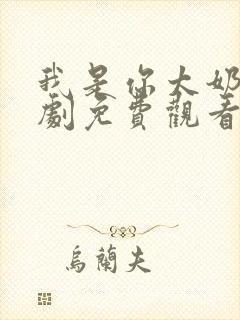 我是你大奶
劇免費觀看
烏蘭夫